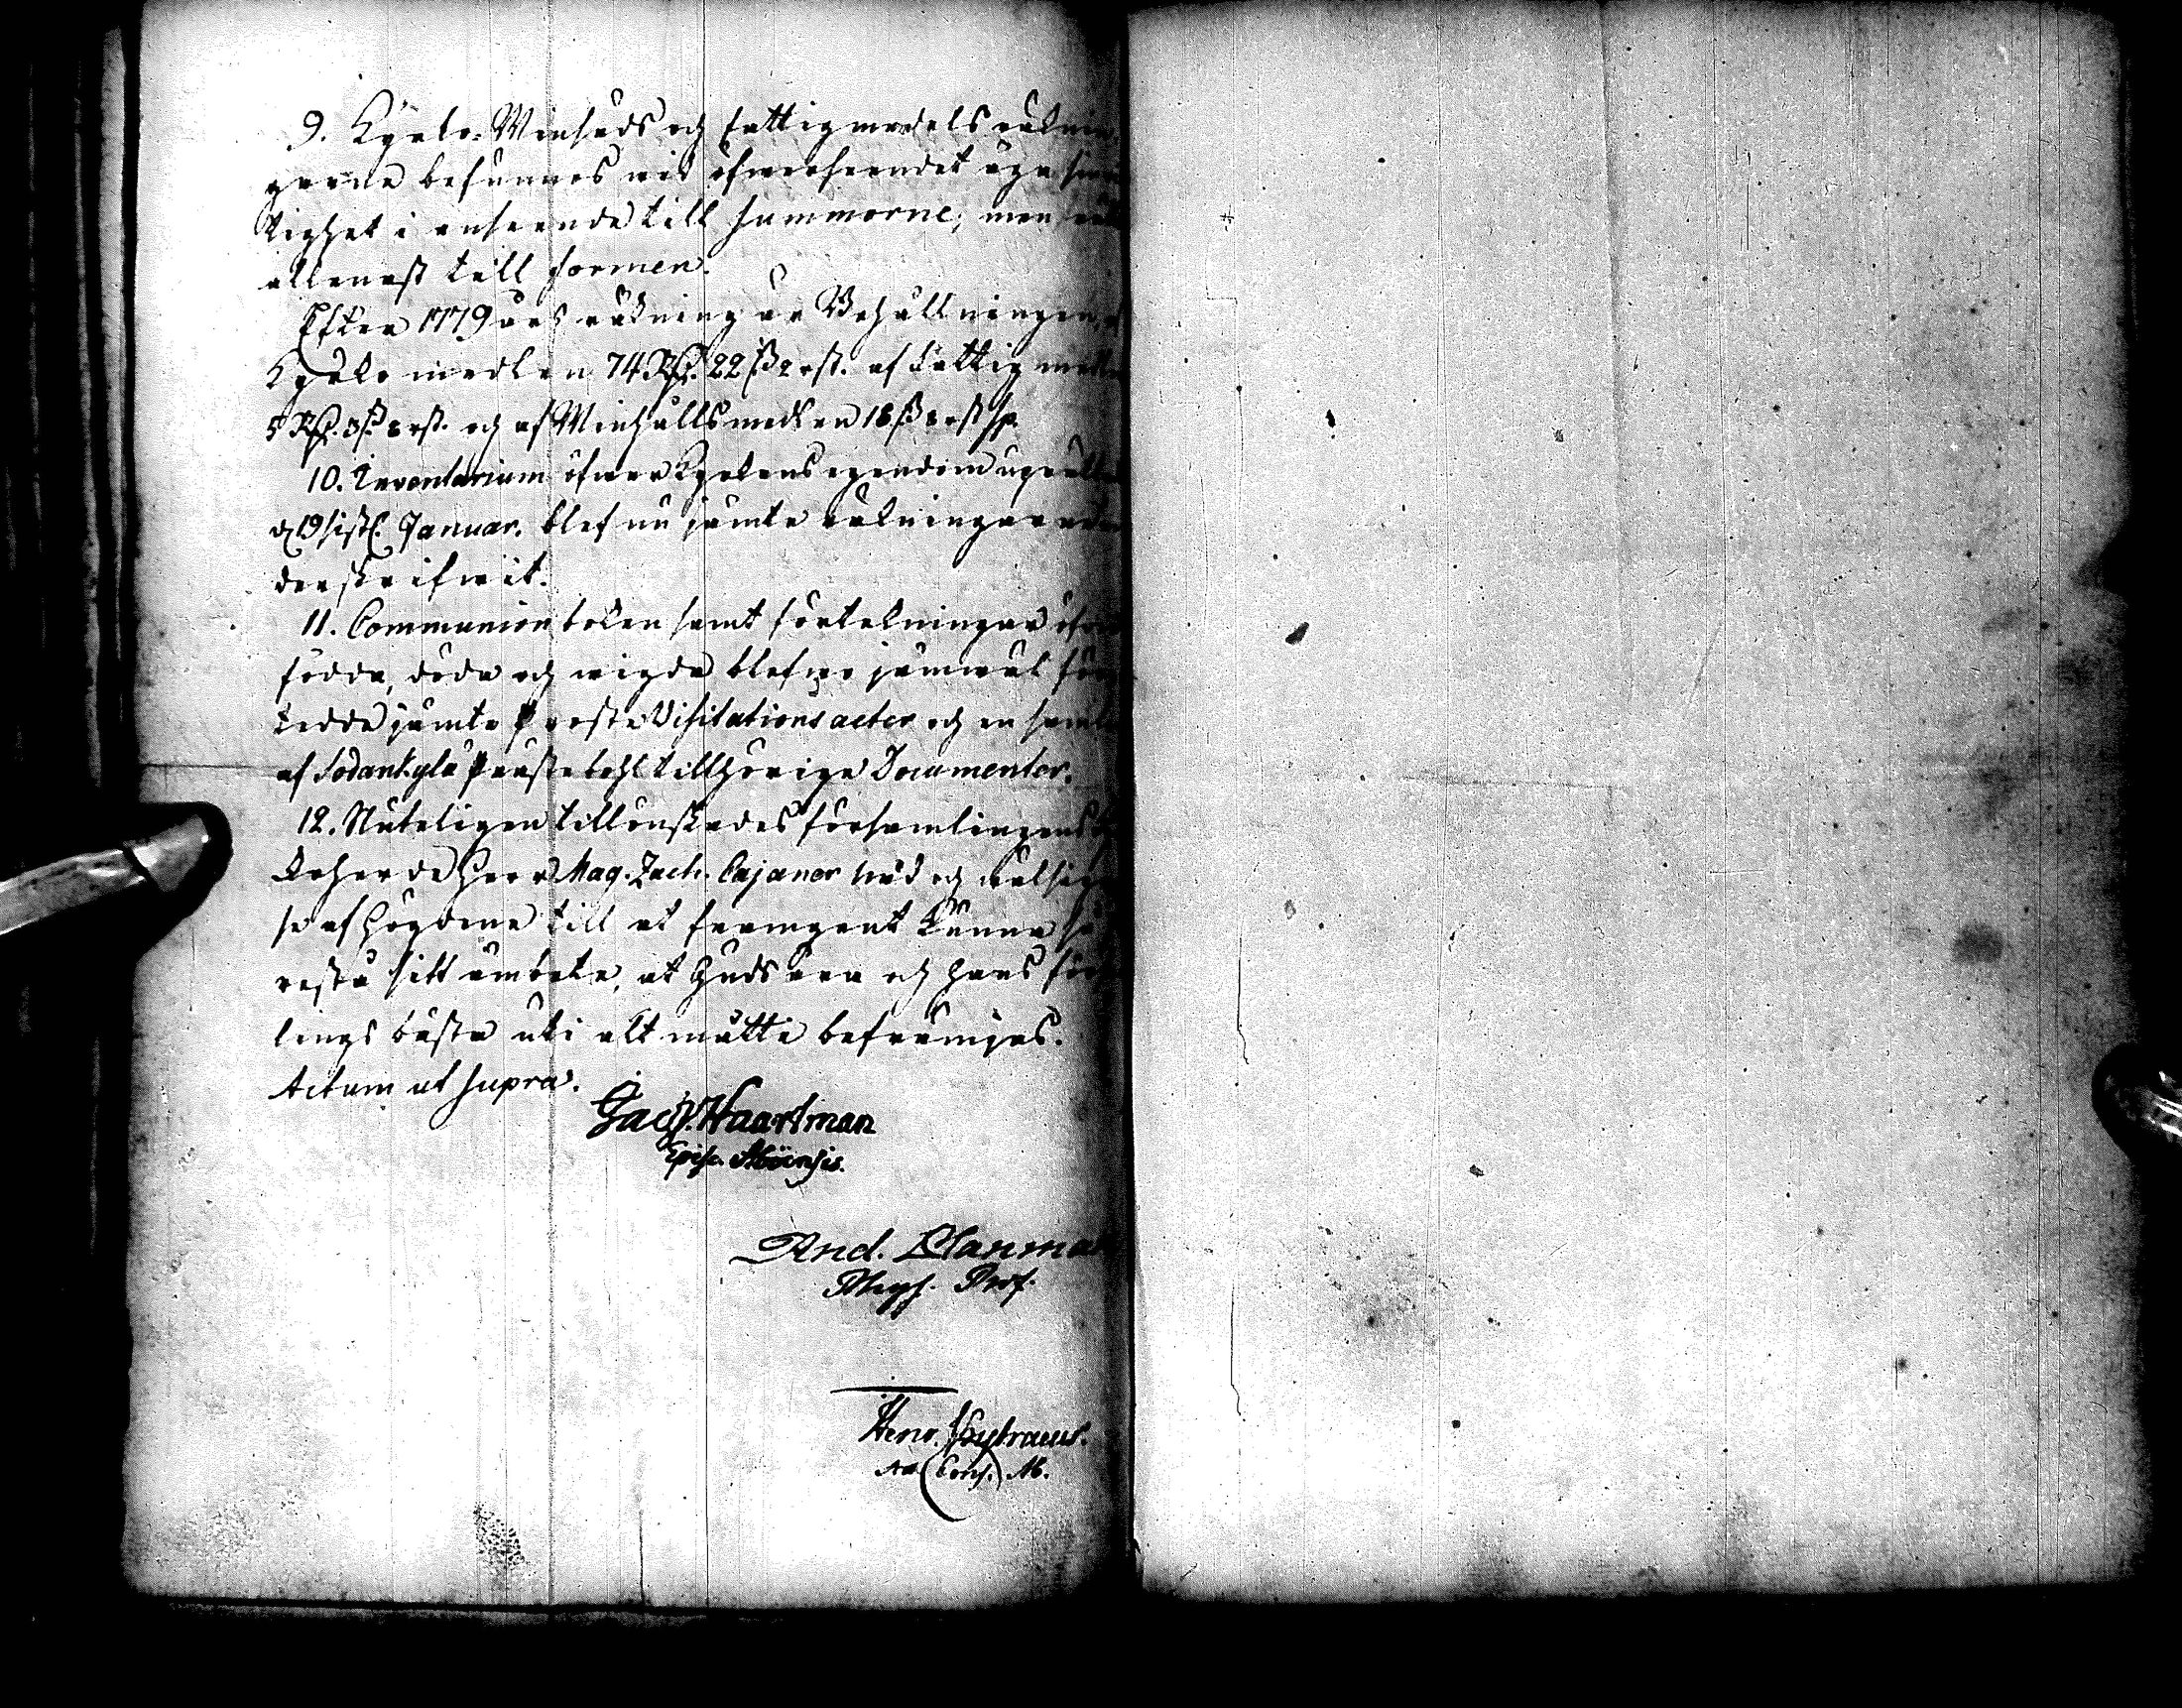 9. Kyrko- Winhåds och fattigmedels räknin
garne befunnos wid öfwerseendet äga sin rik
tighet i anseende till summorne, men
allenast till formen.
Efter 1779 års räkning är Behållningen,
Kyrko medlen 74 Rd. 22 ß 2 rst. af Fattig medlen
5 Rd. 3 ß 8 rst. och af Winhålls medlen 18 ß 8 rst sp.
10. Inventarium öfwer Kyrkans egendom uprättat
d. 19 sistl. Januar. blef nu jämte räkningarna un
derskrifwit.
11. Communion boken samt förtekningar öfwer
födde, döde och wigde blefwo jämwäl före
tedde jämte Prosta Visitations acter och en samling
af Sodankylä prästebohl tillhörige Documenter.
12. Nuteligen tillönskades församlingens
Kyrkoherde Herr Mag. Zach. Cajaner nåd och wälsignel
se af högdene till at framgent kunna
restå sitt ämbete, at Guds ära och hans för
lings bästa uti alt måtte befrämjas.
Actum ut supra.
Jac. Haartman
Episc. Aboënsis.
And. Planman
Phys. Prof.
Henr.
Cons.